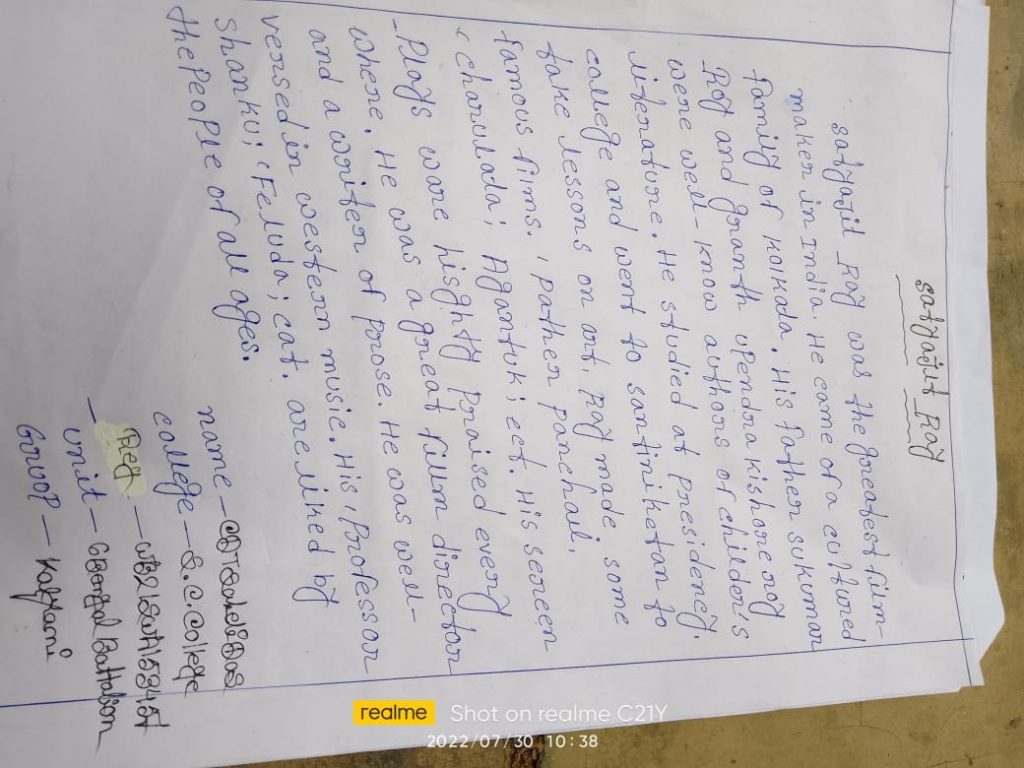 Satyajit Ray
Satyajit Ray was the greatest film-
maker in India. He came of a cultured
family of Kolkada. His father Sukumar
Roy and granth upendra kishore roy
were well-know authors of childen's
literature. He studied at presidency.
college and went to santiniketan to
take lessons on art. Ray made some
famous films. 'pather panchali,
'charulada; Agantuk; ect. His sereen
-Plays ware hisghty Praised every
where. He was a great fillm director
and a writer of prose. He was well-
versed in western music. His 'Professor
Shanku; 'Feluda; cat. are liked by
the PeoPle of all ages.
name -
college - S.C. College
Reg -
unit - 6 Bengal Battalion
GrouP - Kalyani
realme Shot on realme C21Y
2022/07/30 10:38